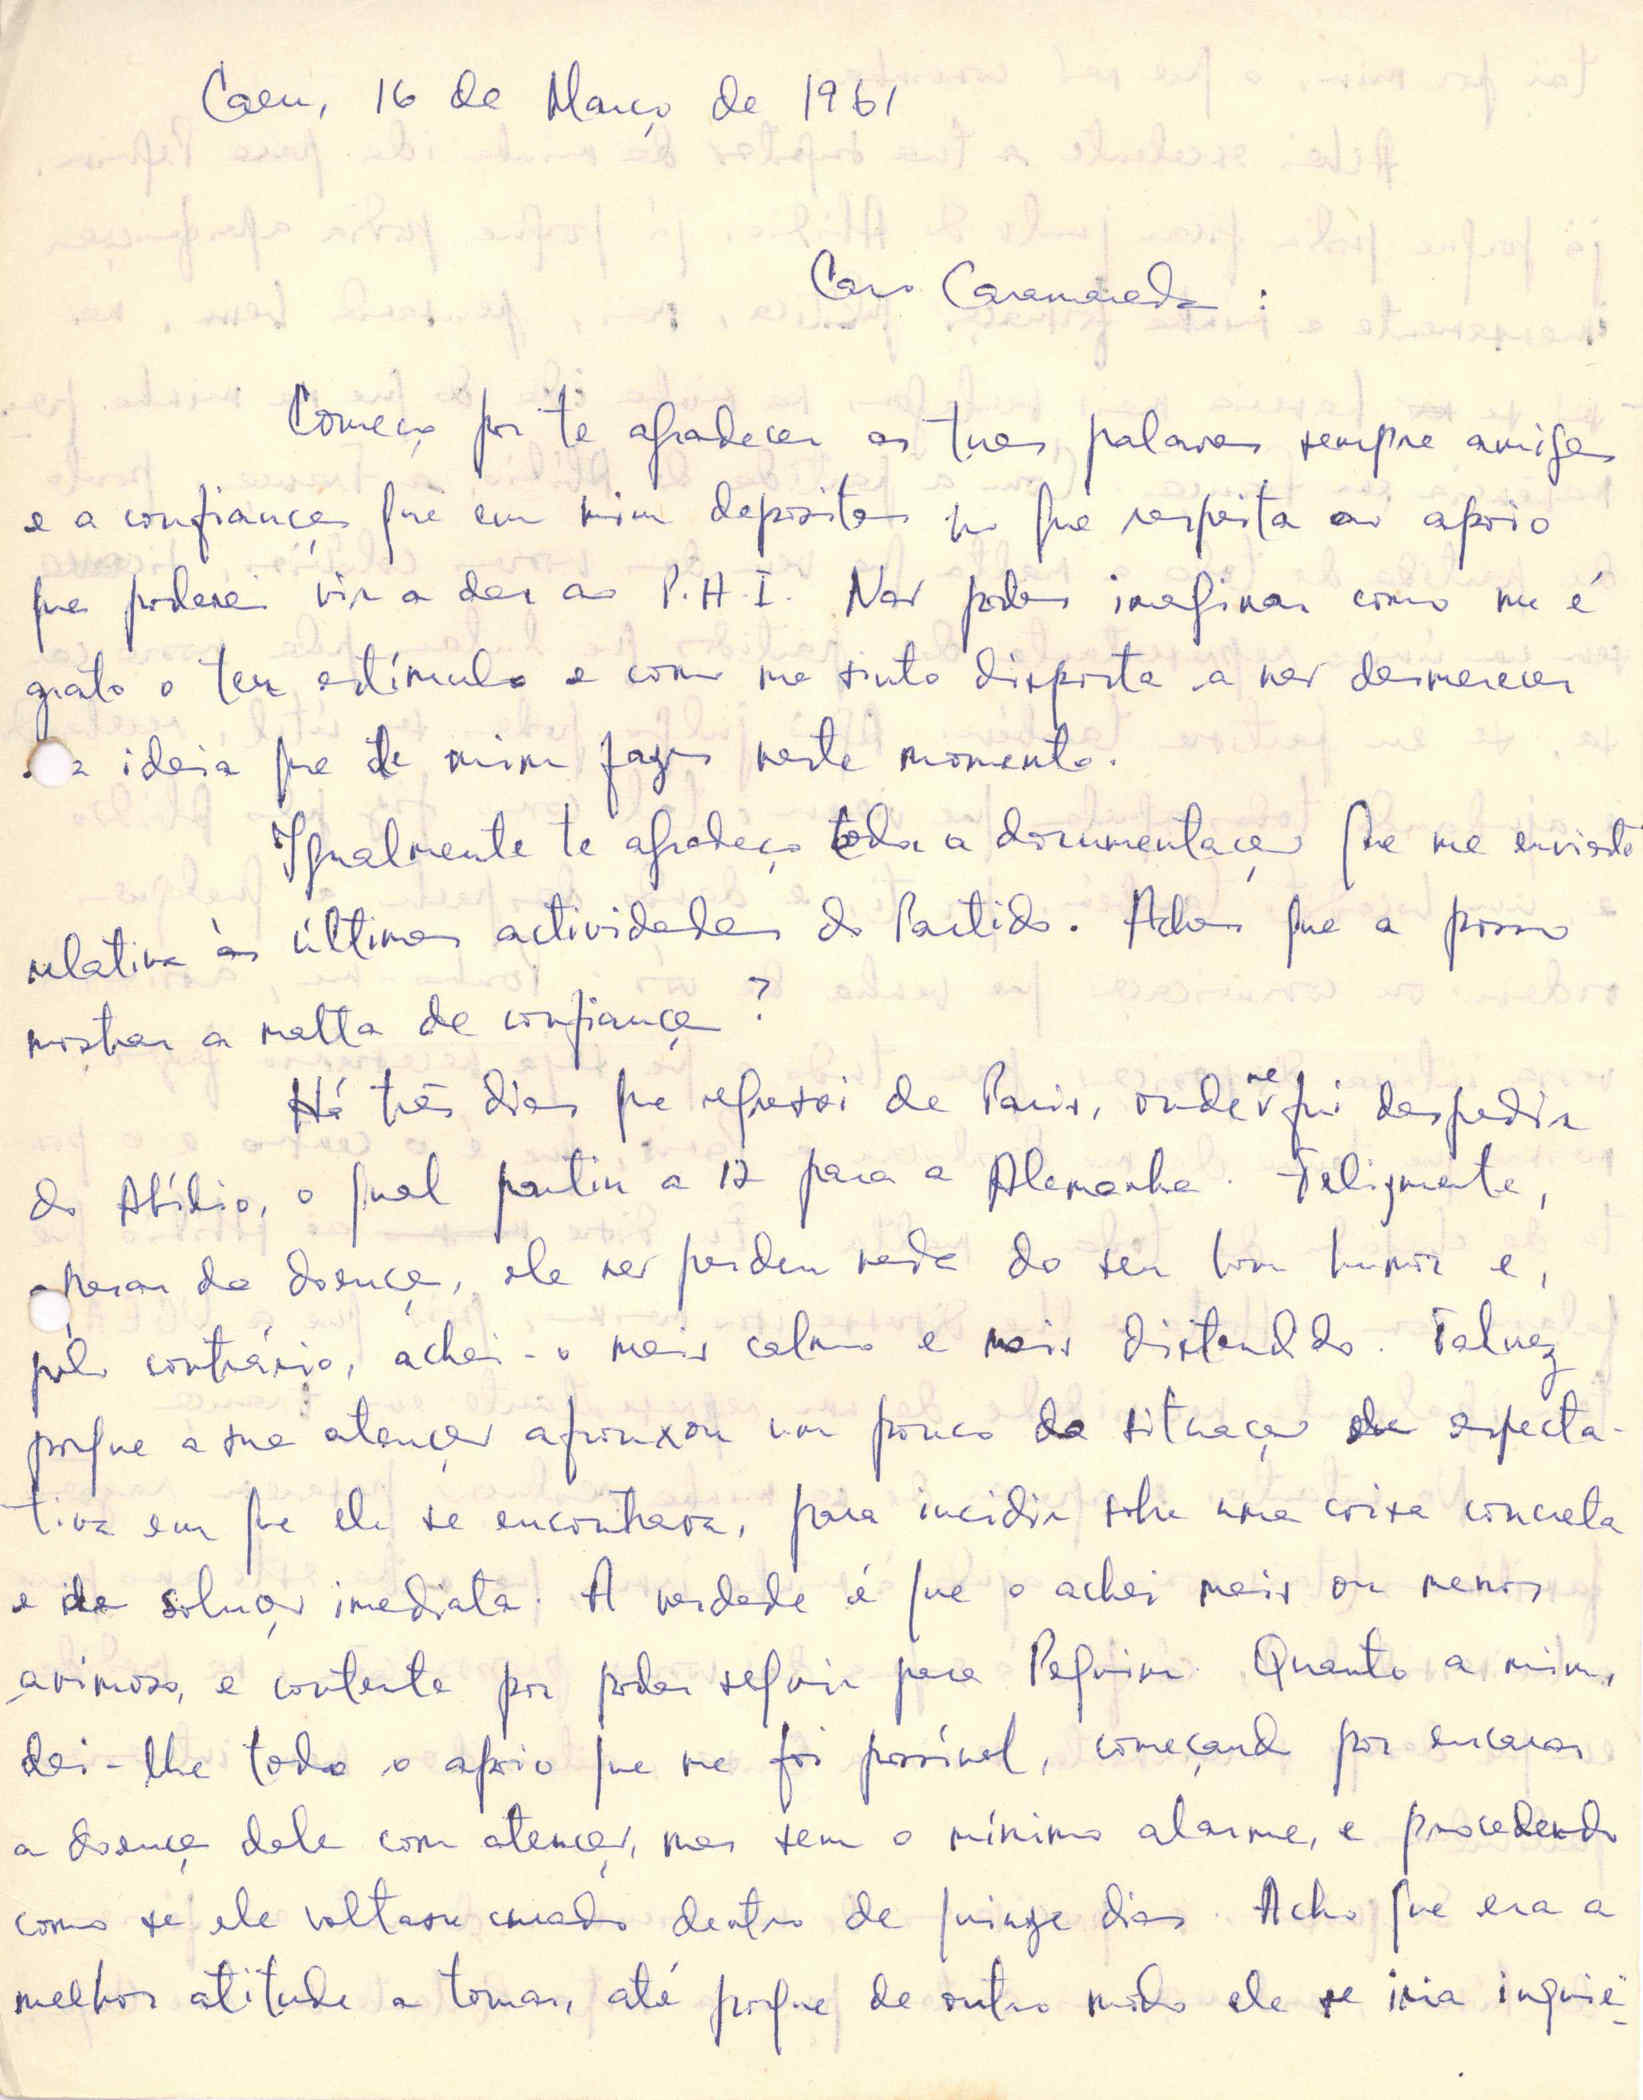 Caen, 16 de Março de 1961
Caro Camarada :
Começo por te agradecer as tuas palavras sempre amigas
e a confiança que em mim depositas no que respeita ao apoio
que poderei vir a dar ao P.A.I. Não podes imaginar como me é
grato o teu estímulo e como me sinto disposta a não desmerecer
a ideia que de mim fazes neste momento.
Igualmente te agradeço toda a documentação que me enviaste
relativa às últimas actividades do Partido. Achas que a posso
mostrar a malta de confiança ?
Há três dias que regressei de Paris, onde me fui despedir
do Abílio, o qual partiu a 12 para a Alemanha. Felizmente,
apesar da doença, ele não perdeu nada do seu bom humor e,
pelo contrário, achei-o mais calmo e mais distendido. Talvez
porque a sua atenção afrouxou um pouco da situação de expecta-
tiva em que ele se encontrava, para incidir sobre uma coisa concreta
e de solução imediata. A verdade é que o achei mais ou menos
animoso, e contente por poder seguir para Pequim. Quanto a mim,
dei-lhe todo o apoio que me foi possível, começando por encarar
a doença dele com atenção, mas sem o mínimo alarme, e procedendo
como se ele voltasse curado dentro de quinze dias. Acho que era a
melhor atitude a tomar, até porque de outro modo ele se iria inquie-